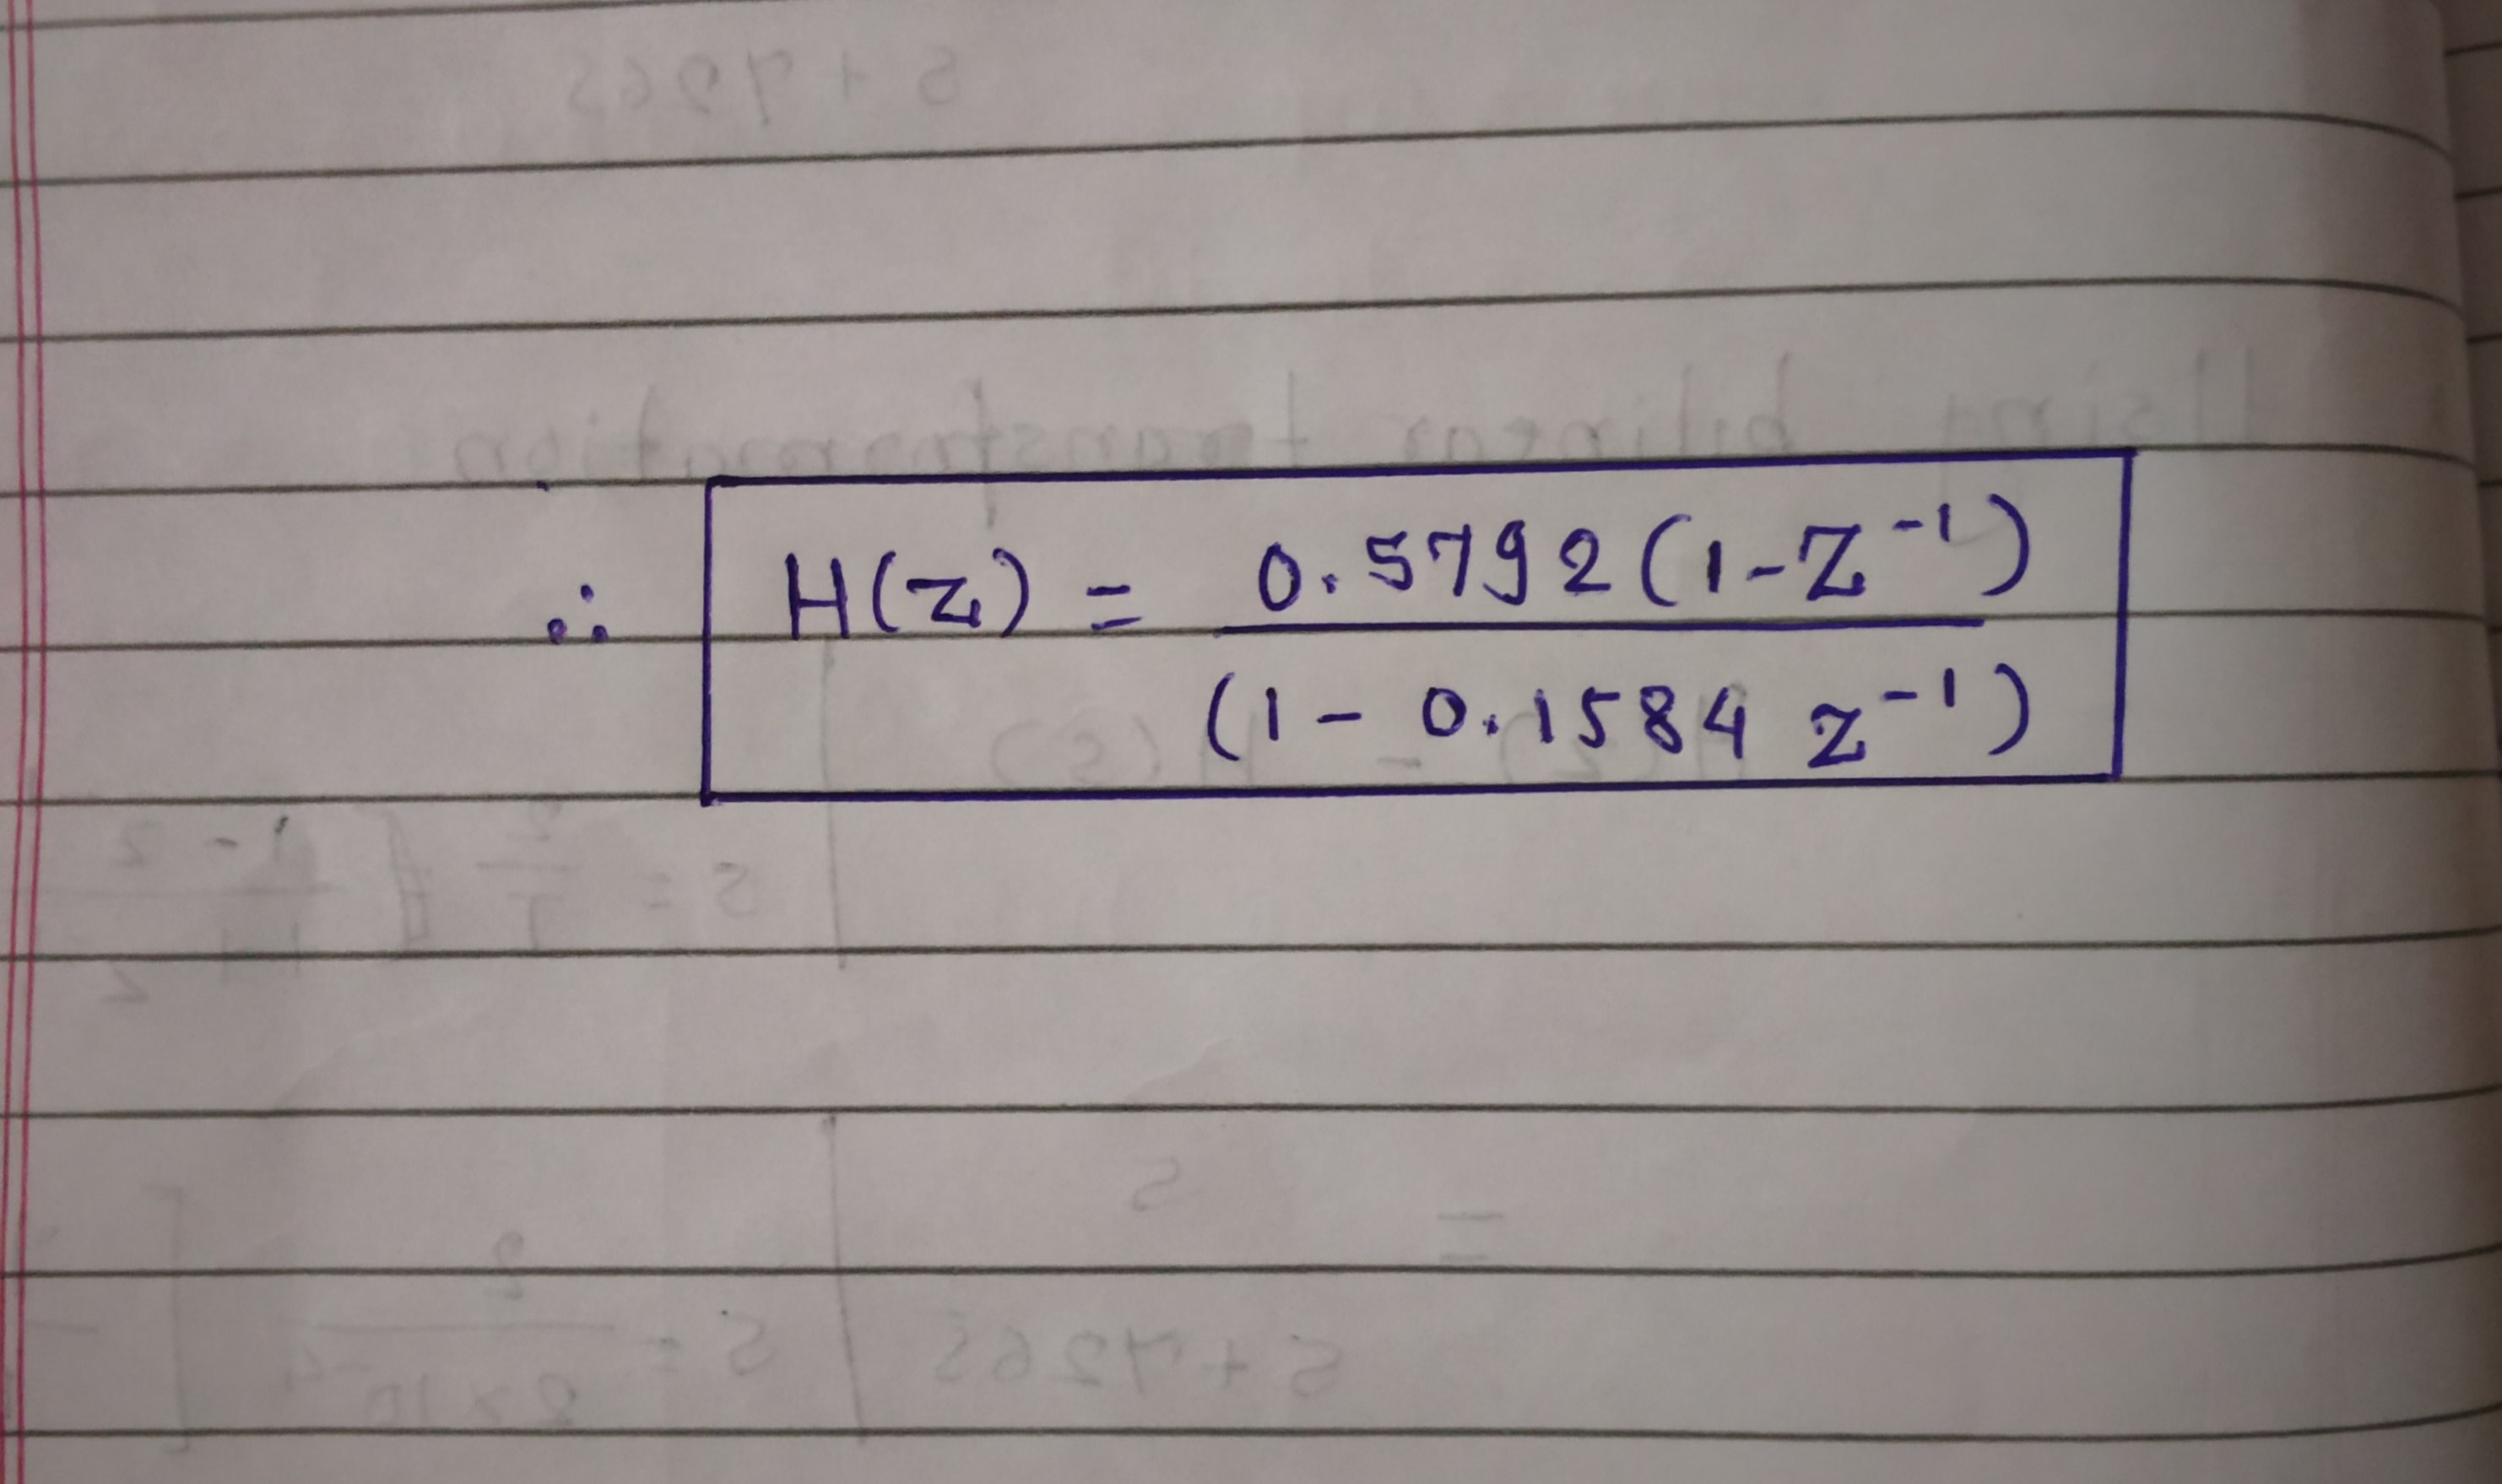 ∴ H(z) = 0.5792(1-z⁻¹)
(1 - 0.1584 z⁻¹)